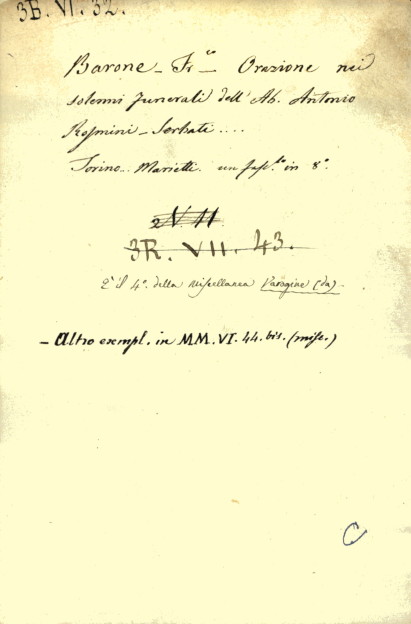 3B. VI. 32.
Barone – Fr.co – Orazione nei
solenni funerali dell'Ab. Antonio
Rosmini – Serbati....
Torino. Marietti. un fasc.lo in 8°.
2 V 11
3R. VII. 43.
È il 4°. della miscellanea Varagine (da).
– Altro exempl. in MM. VI. 44. bis. (misc.)
C